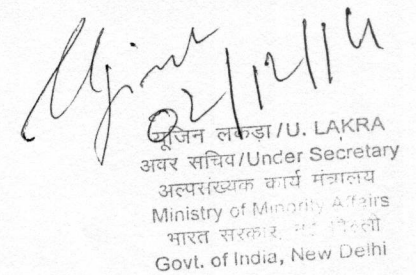 02/12/14
यूजिन लकड़ा/U. LAKRA
अवर सचिव/Under Secretary
अल्पसंख्यक कार्य मंत्रालय
Ministry of Minority Affairs
भारत सरकार, नई दिल्ली
Govt. of India, New Delhi